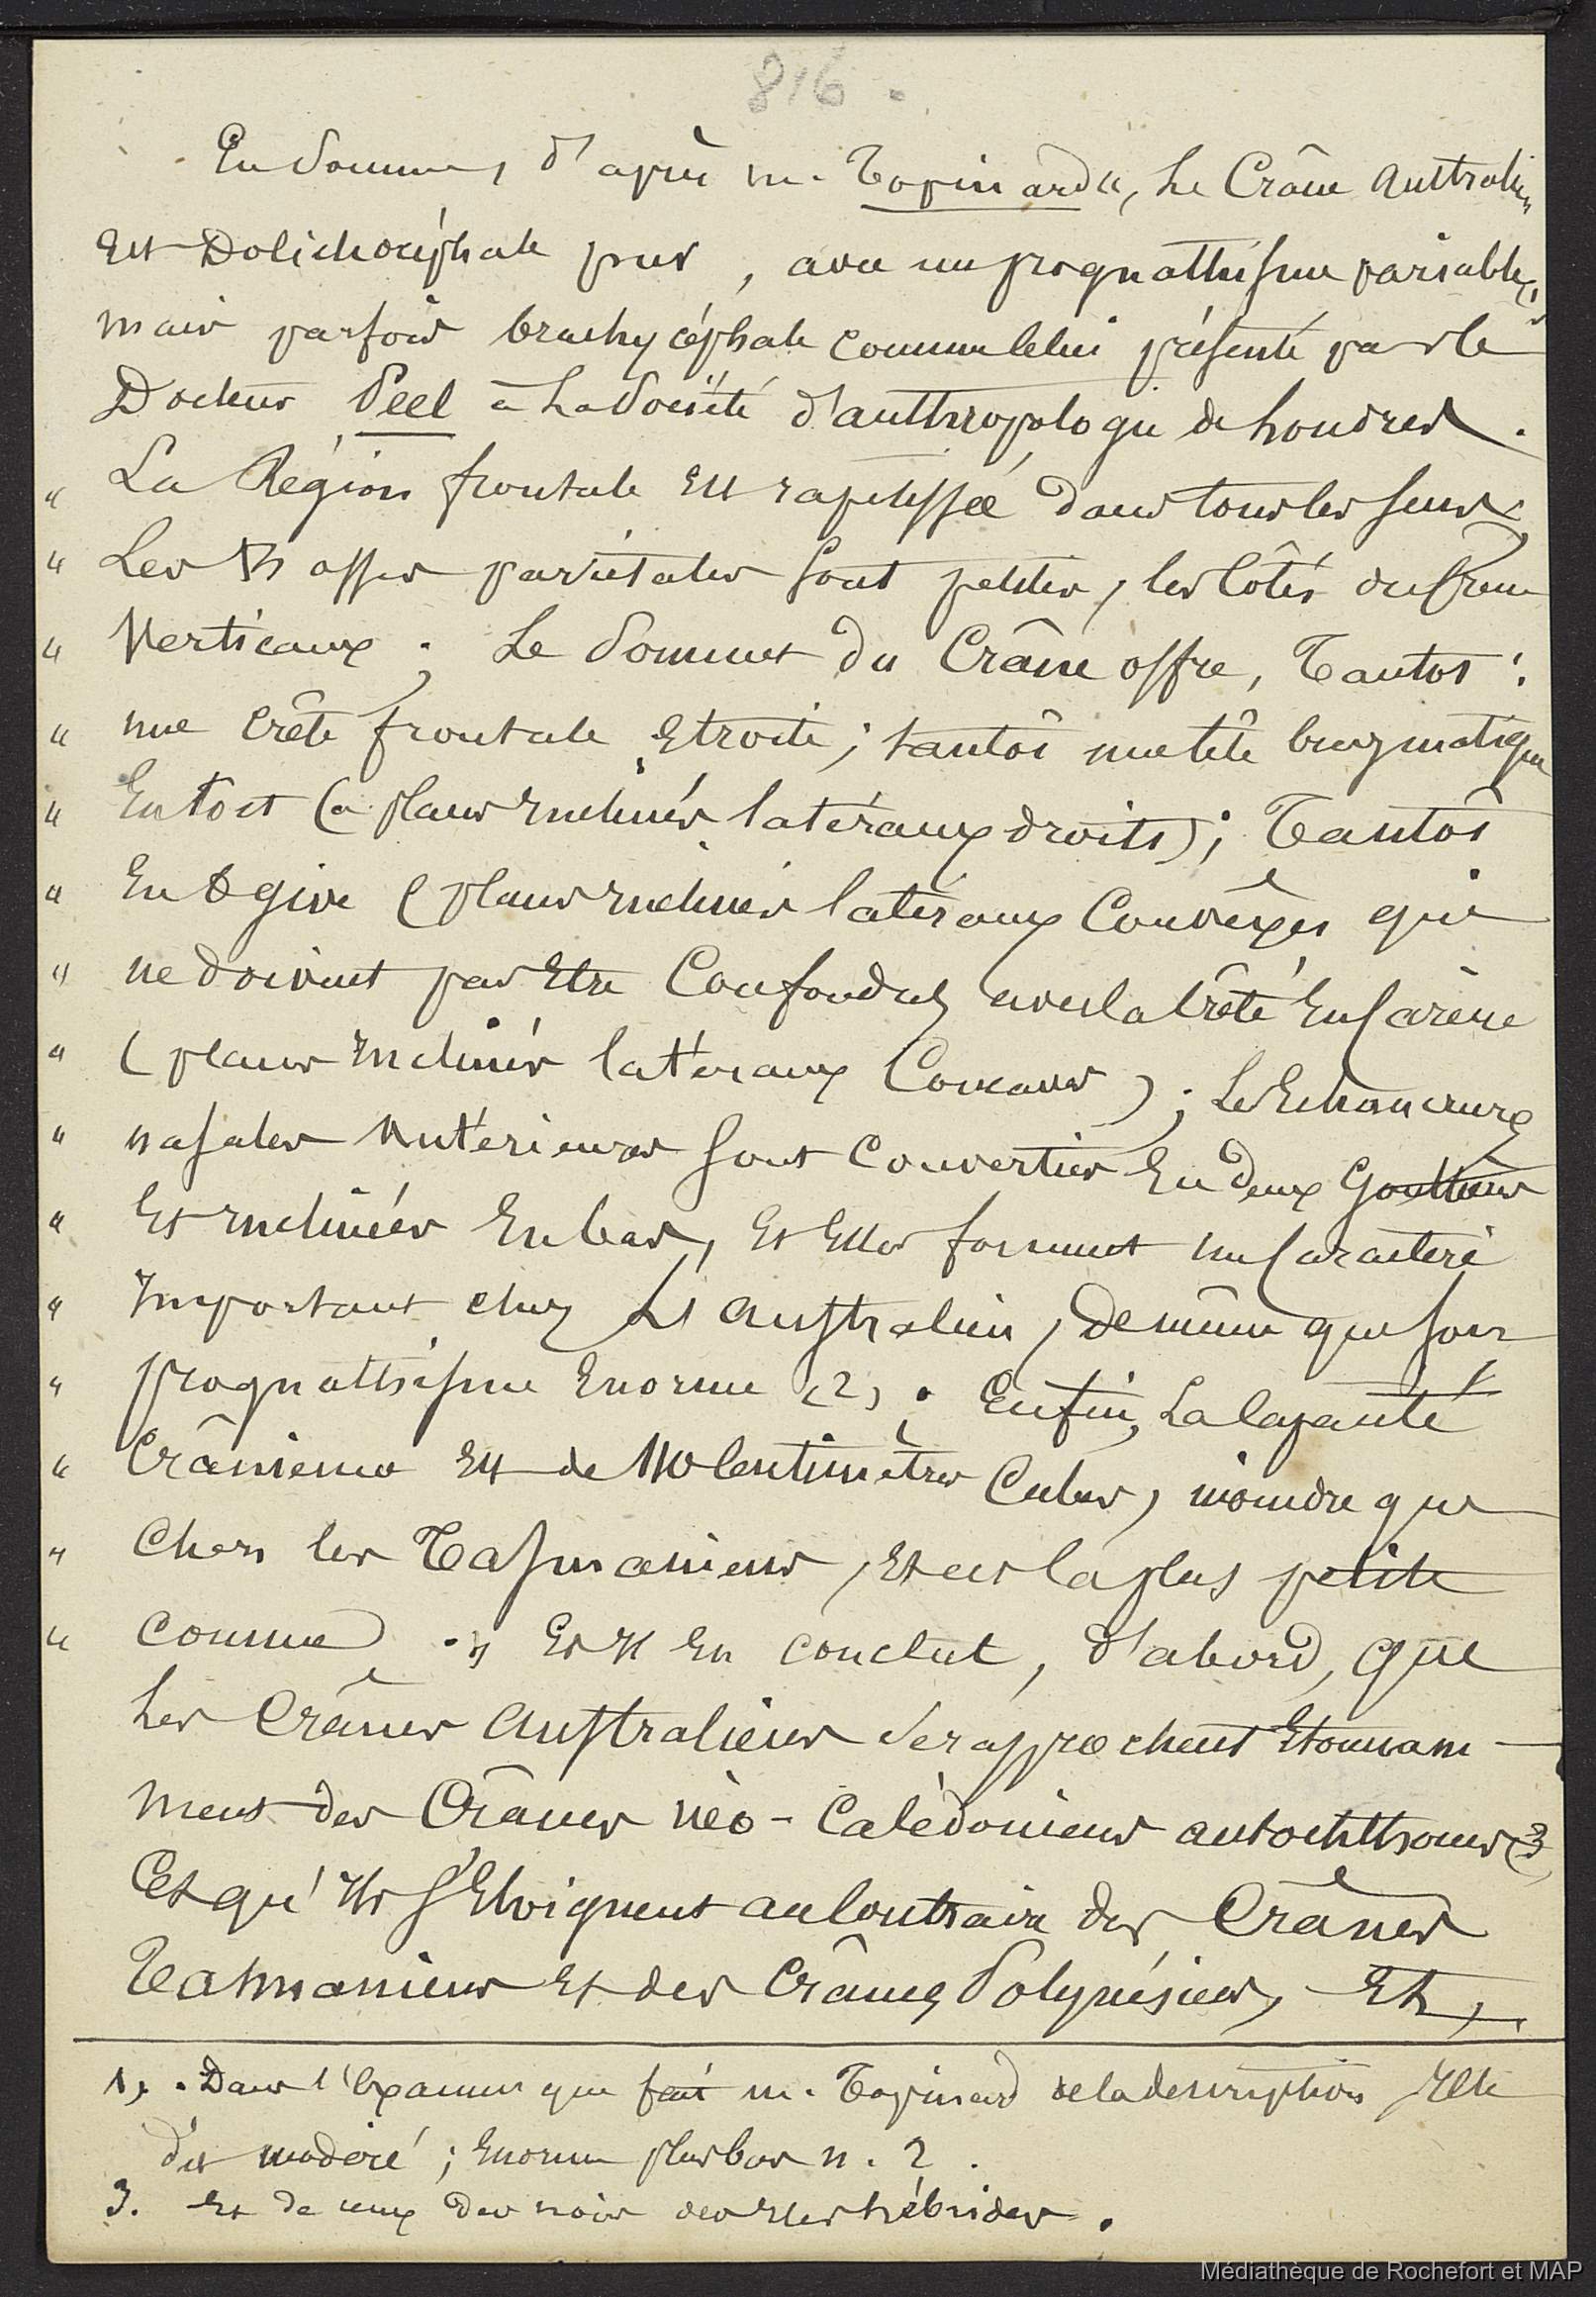 816.
En somme, d'après m. Topinard", Le Crâne Australien
Est Dolichocéphale pur, avec un prognathisme variable,
mais parfois brachycéphale comme celui présenté par le
Docteur Peel à La Société d'anthropologie de Londres.
" La Région frontale Est rapetissée dans tous les sens,
" Les Bosses pariétales sont petites, les Côtés du Crane
" Verticaux ; Le Sommet du Crâne offre, Tantot :
" une Crête frontale Etroite ; tantôt une tête bregmatique
" En toit (à plans Inclinés latéraux droits) ; Tantôt
" En Ogive (plans Inclinés latéraux Convèxes qui
" ne doivent pas Etre Confondus avec la Crête En Carène
" (plans Inclinés latéraux Concaves) ; Les Echancrures
" nasales Antérieures sont Converties En deux Gouttières
" Et Inclinées En bas, Et Elles forment un Caractère
" Important chez L'Australien, de même que son
" prognathisme Enorme (2). Enfin, La Capacité
" Crânienne Est de Centimètres Cubes, moindre que
" Chez les Tasmaniens, Et c'est la plus petite
" connue." Et Il En conclut, d'abord, que
Les Crânes Australiens se rapprochent Etonnam-
ment des Crânes néo-Calédoniens autochthones (3)
Et qu'Ils s'Eloignent au Contraire des Crânes
Tasmaniens Et des Crânes Polynésiens, Et,
1). Dans l'Examen que fait m. Topinard de la description Il le
dit modéré ; Enorme plus bas n. 2.
3. Et de ceux des noirs des Iles hébrides.
Médiathèque de Rochefort et MAP